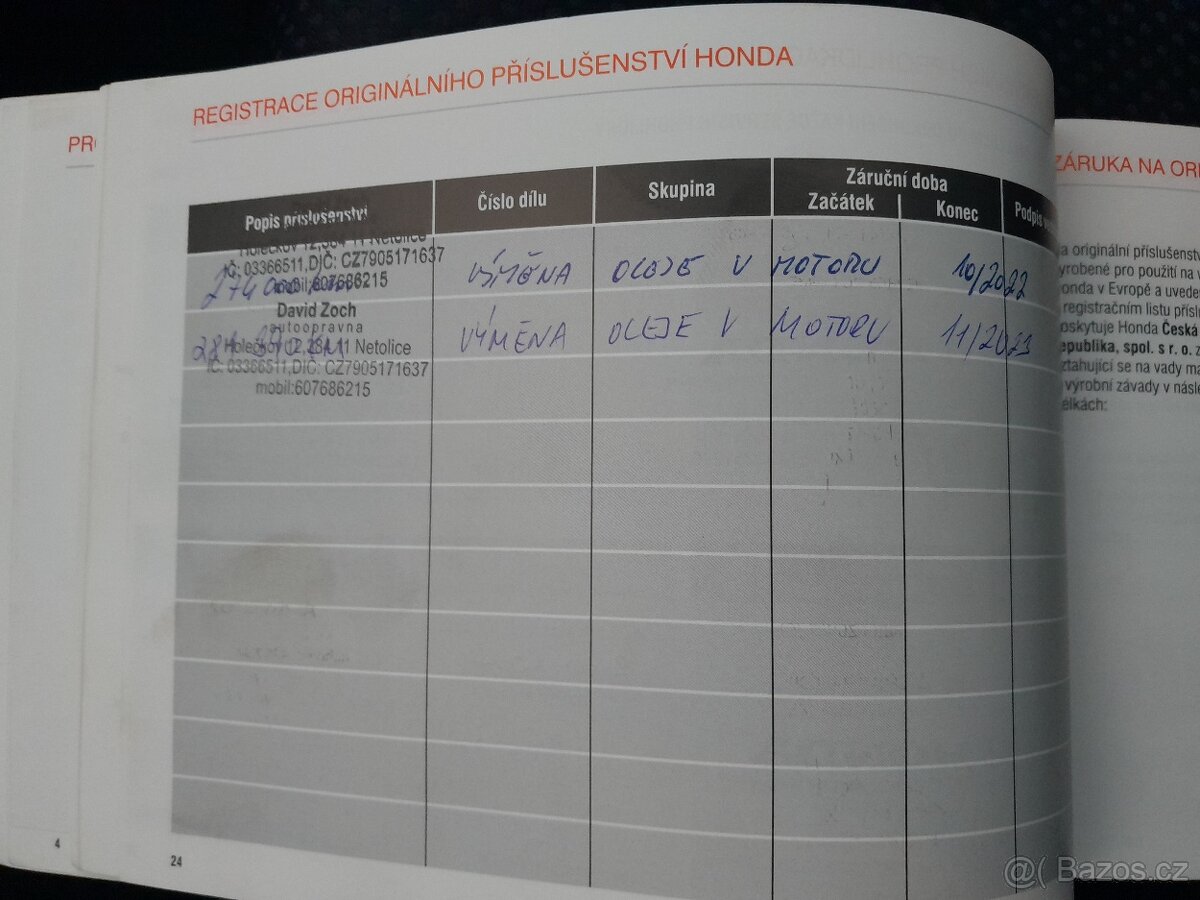 REGISTRACE ORIGINÁLNÍHO PŘÍSLUŠENSTVÍ HONDA
Popis příslušenství
Číslo dílu
Skupina
Záruční doba
Začátek
Konec
Podpis
12,384 11 Netolice
IČ: 03366511,DIČ: CZ7905171637
mobil:607686215
VÝMĚNA OLEJE V MOTORU 10/2022
David Zoch
autoopravna
Holečkov 12,384 11 Netolice
IČ: 03366511,DIČ: CZ7905171637
mobil:607686215
VÝMĚNA OLEJE V MOTORU 11/2023
24
PR
4
ZÁRUKA NA ORI
a originální příslušenstv
yrobené pro použití na v
onda v Evropě a uvedes
registračním listu přísl
oskytuje Honda Česká
epublika, spol. s r. o. z
ztahující se na vady ma
výrobní závady v násle
élkách:
@( Bazos.cz